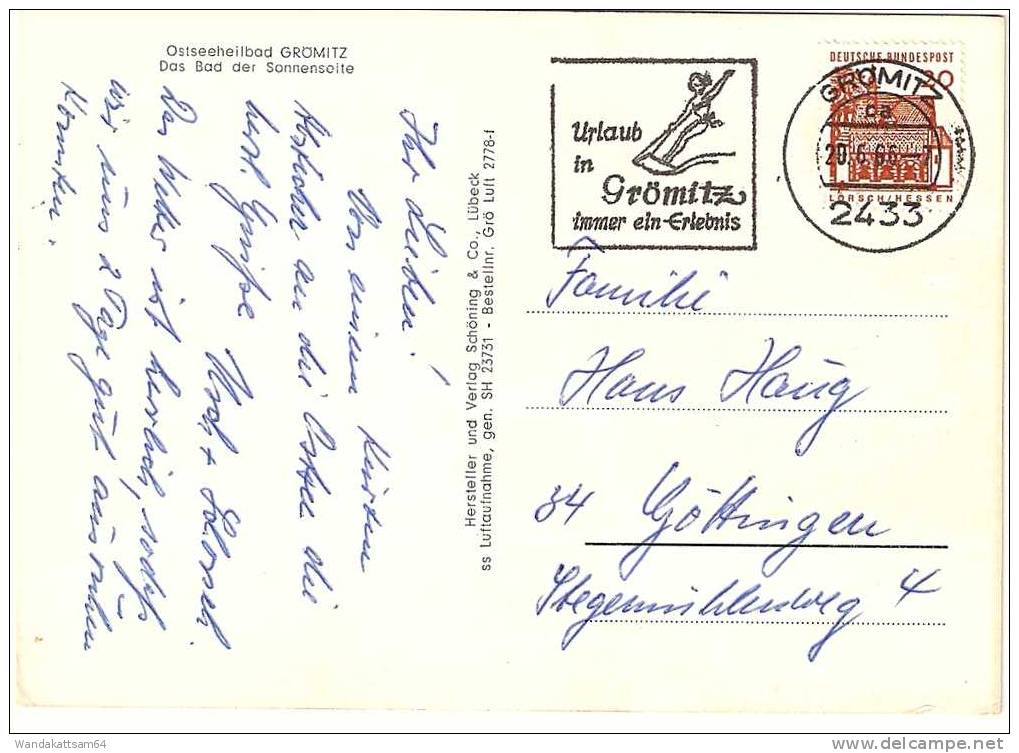 Ostseeheilbad GRÖMITZ
Das Bad der Sonnenseite
Ihr Lieben!
Von einem kurzen
Abstecher an die Ostsee die
herzl. Grüße
Das Wetter ist herrlich, sodaß
wir uns 2 Tage gut ausruhen
konnten.
Hersteller und Verlag Schöning & Co., Lübeck
ss Luftaufnahme, gen. SH 23731 - Bestellnr. Grö Luft 2778-f
Urlaub
in
Grömitz
immer ein-Erlebnis
DEUTSCHE BUNDESPOST
20
LORSCH/HESSEN
GRÖMITZ
2433
Familie
Hans Haug
34 Göttingen
Stegemühlenweg 4
Wandakattsam64
delcampe.net